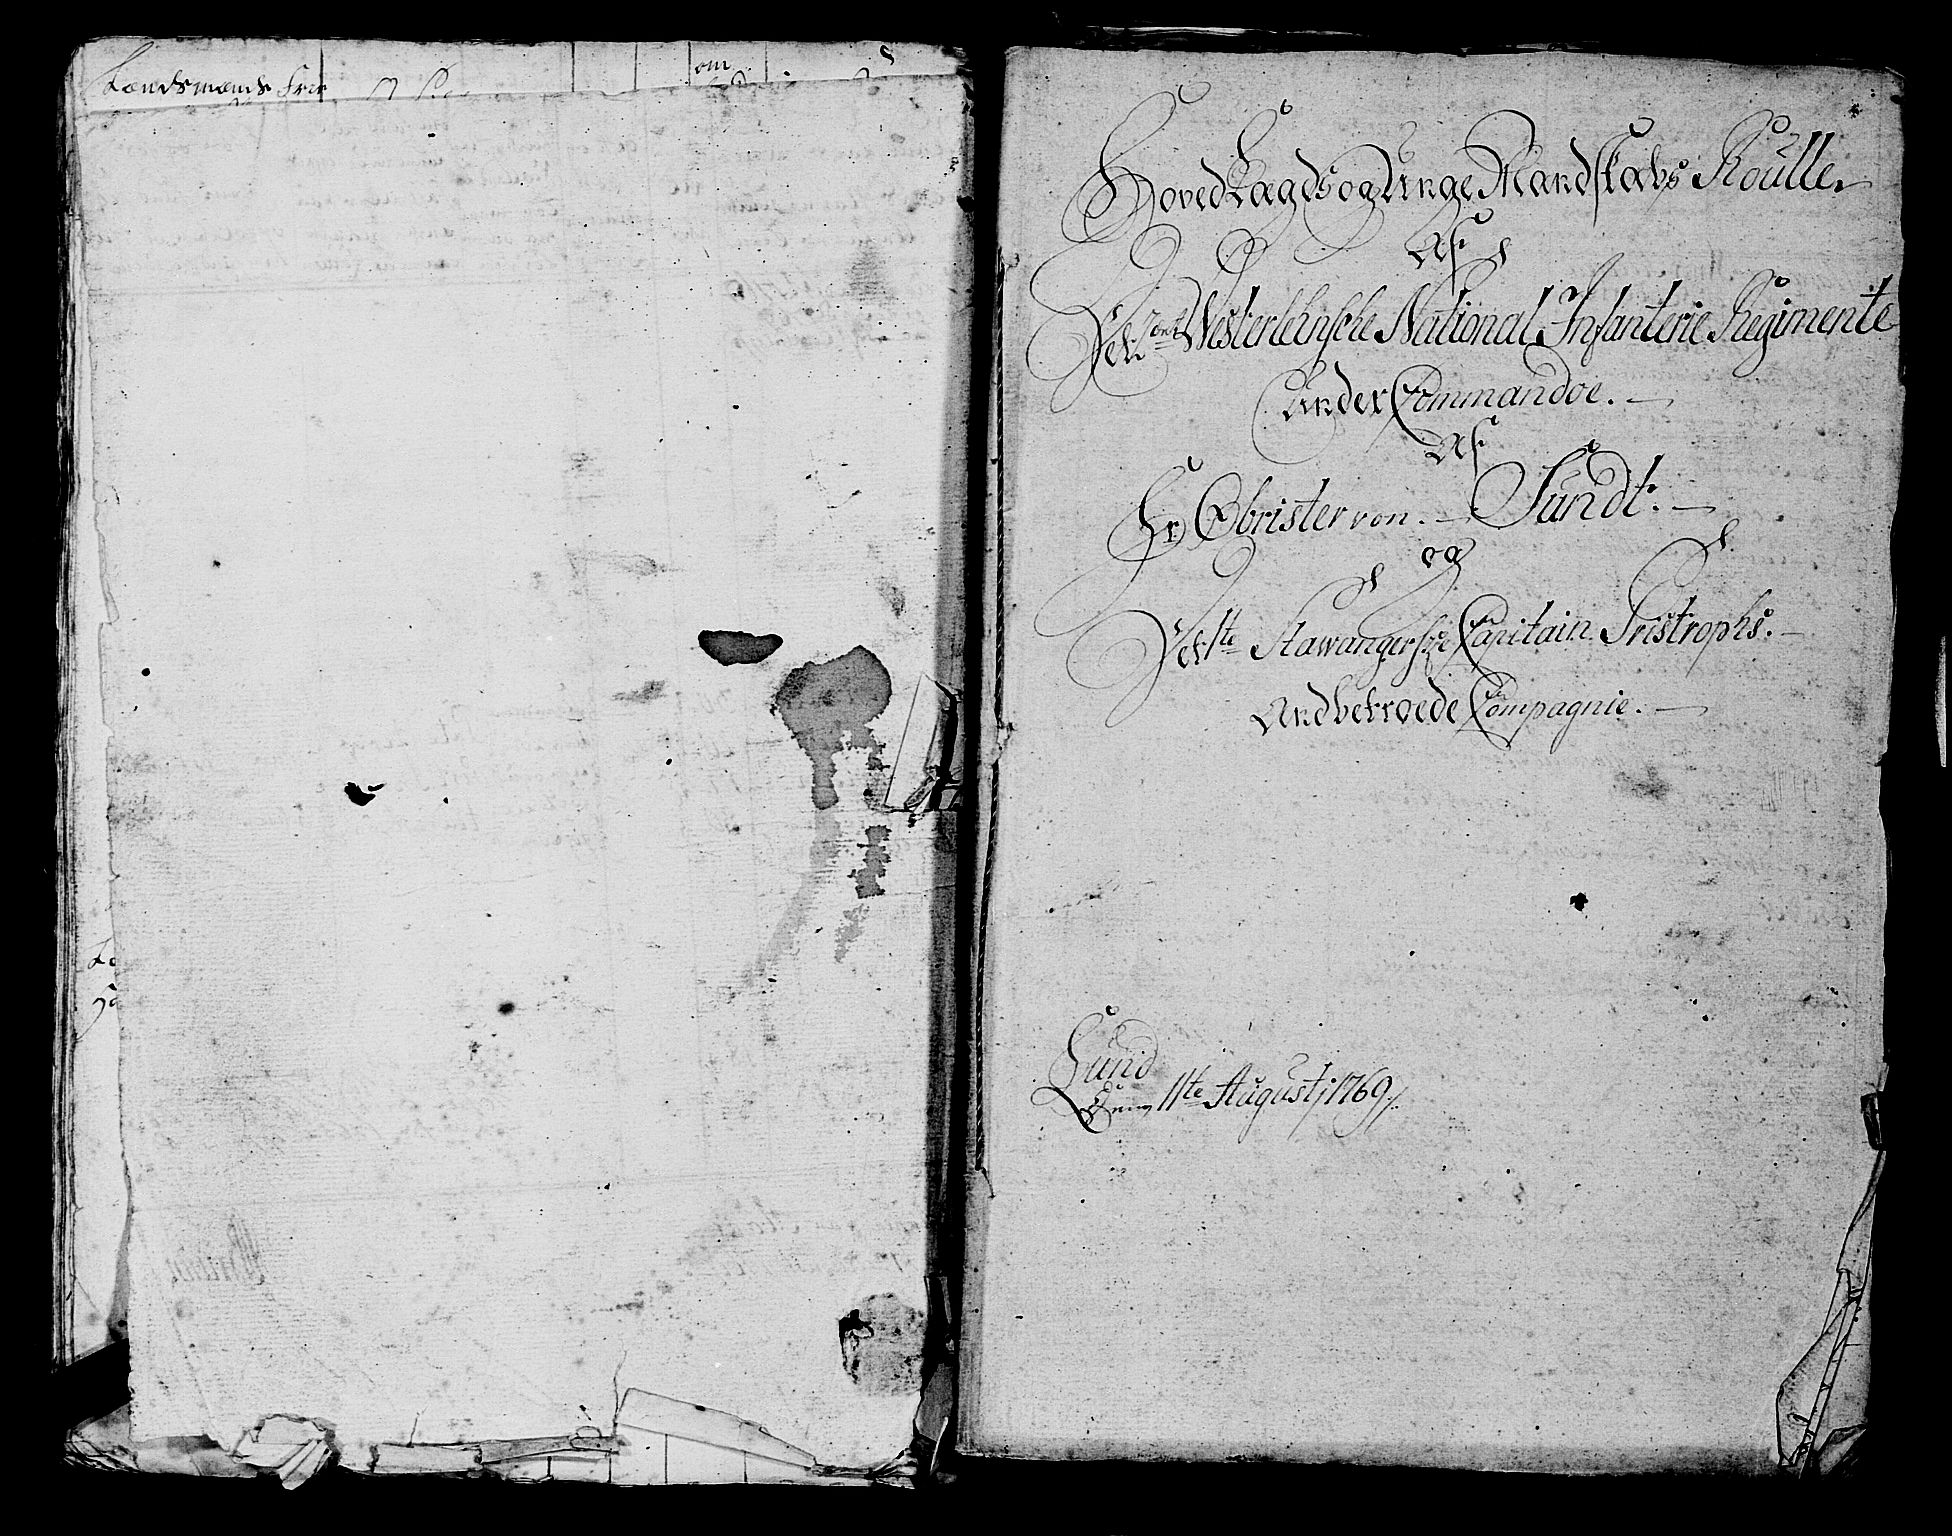 Lændsmænds
om
Hoved Lægds og Unge Mandskabs Roulle
Af
Det 2det Westerlehnsche National Infanterie Regimente
Under Commandoe.
Af
Hr Obrister von. Sundt.
og
Det 1te Stawangerske Capitain Tristrophs.
Andbetroede Compagnie.
Lund
Denn 11te August, 1769